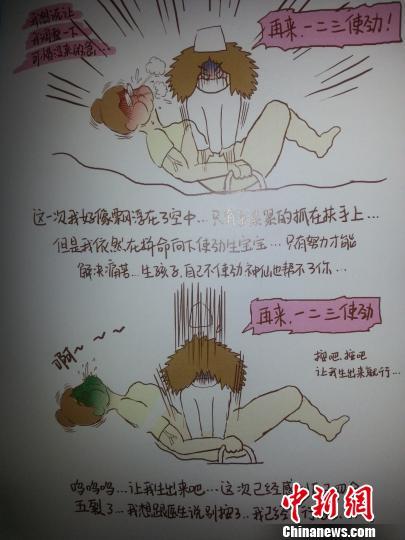 我想说让
我调整一下
可惜没来的急…
再来,一二三使劲!
这一次我好像飘浮在了空中…只有紧紧的抓在扶手上…
但是我依然在拼命向下使劲生宝宝…只有努力才能
解决痛苦…生孩子,自己不使劲神仙也帮不了你…
再来,一二三使劲
啊~~~
按吧,按吧
让我生出来就行…
呜呜呜…让我生出来吧…这次已经感
五裂了…我想跟医生说别按了…我已经
中新网
Chinanews.com